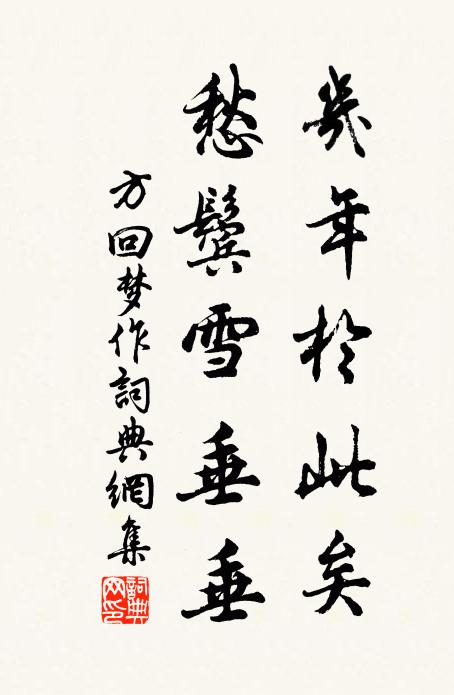 幾年於此矣
愁鬢雪垂垂
方回梦作詞典網集
詞典网印